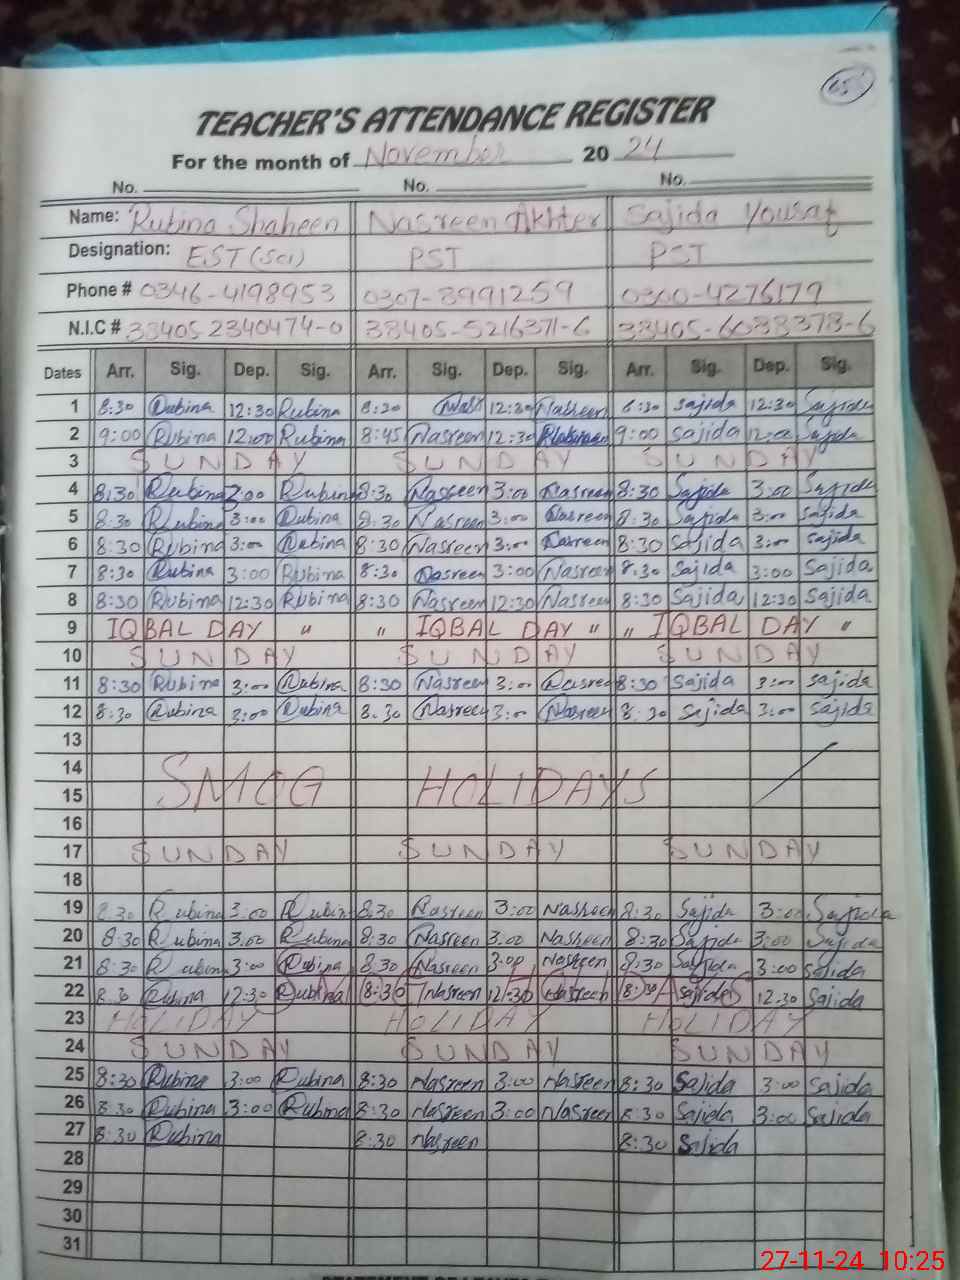 TEACHER'S ATTENDANCE REGISTER
For the month of November 2024
No. No. No.
Name: Rubina Shaheen Nasreen Akhter Sajida Yousaf
Designation: EST (Sci) PST PST
Phone # 0346-4198953 0307-8991259 0300-4276179
N.I.C # 38405 2340474-0 38405-5216371-6 38405-6038378-6
Dates Arr. Sig. Dep. Sig. Arr. Sig. Dep. Sig. Arr. Sig. Dep. Sig.
1 8:30 Rubina 12:30 Rubina 8:30 12:30 Nasreen 8:30 Sajida 12:30 Sajida
2 9:00 Rubina 12:00 Rubina 8:45 Nasreen 12:30 9:00 Sajida 12:00 Sajida
3 SUNDAY SUNDAY SUNDAY
4 8:30 Rubina 3:00 Rubina 8:30 Nasreen 3:00 Nasreen 8:30 Sajida 3:00 Sajida
5 8:30 Rubina 3:00 Rubina 8:30 Nasreen 3:00 Nasreen 8:30 Sajida 3:00 Sajida
6 8:30 Rubina 3:00 Rubina 8:30 Nasreen 3:00 Nasreen 8:30 Sajida 3:00 Sajida
7 8:30 Rubina 3:00 Rubina 8:30 Nasreen 3:00 Nasreen 8:30 Sajida 3:00 Sajida
8 8:30 Rubina 12:30 Rubina 8:30 Nasreen 12:30 Nasreen 8:30 Sajida 12:30 Sajida
9 IQBAL DAY " " IQBAL DAY " " IQBAL DAY "
10 SUNDAY SUNDAY SUNDAY
11 8:30 Rubina 3:00 Rubina 8:30 Nasreen 3:00 Nasreen 8:30 Sajida 3:00 Sajida
12 8:30 Rubina 3:00 Rubina 8:30 Nasreen 3:00 Nasreen 8:30 Sajida 3:00 Sajida
13
14 SMOG HOLIDAYS
15
16
17 SUNDAY SUNDAY SUNDAY
18
19 8:30 Rubina 3:00 Rubina 8:30 Nasreen 3:00 Nasreen 8:30 Sajida 3:00 Sajida
20 8:30 Rubina 3:00 Rubina 8:30 Nasreen 3:00 Nasreen 8:30 Sajida 3:00 Sajida
21 8:30 Rubina 3:00 Rubina 8:30 Nasreen 3:00 Nasreen 8:30 Sajida 3:00 Sajida
22 8:30 Rubina 12:30 Rubina 8:30 Nasreen 12:30 Nasreen 8:30 Sajida 12:30 Sajida
23 HOLIDAY HOLIDAY HOLIDAY
24 SUNDAY SUNDAY SUNDAY
25 8:30 Rubina 3:00 Rubina 8:30 Nasreen 3:00 Nasreen 8:30 Sajida 3:00 Sajida
26 8:30 Rubina 3:00 Rubina 8:30 Nasreen 3:00 Nasreen 8:30 Sajida 3:00 Sajida
27 8:30 Rubina 8:30 Nasreen 8:30 Sajida
28
29
30
31
27-11-24 10:25